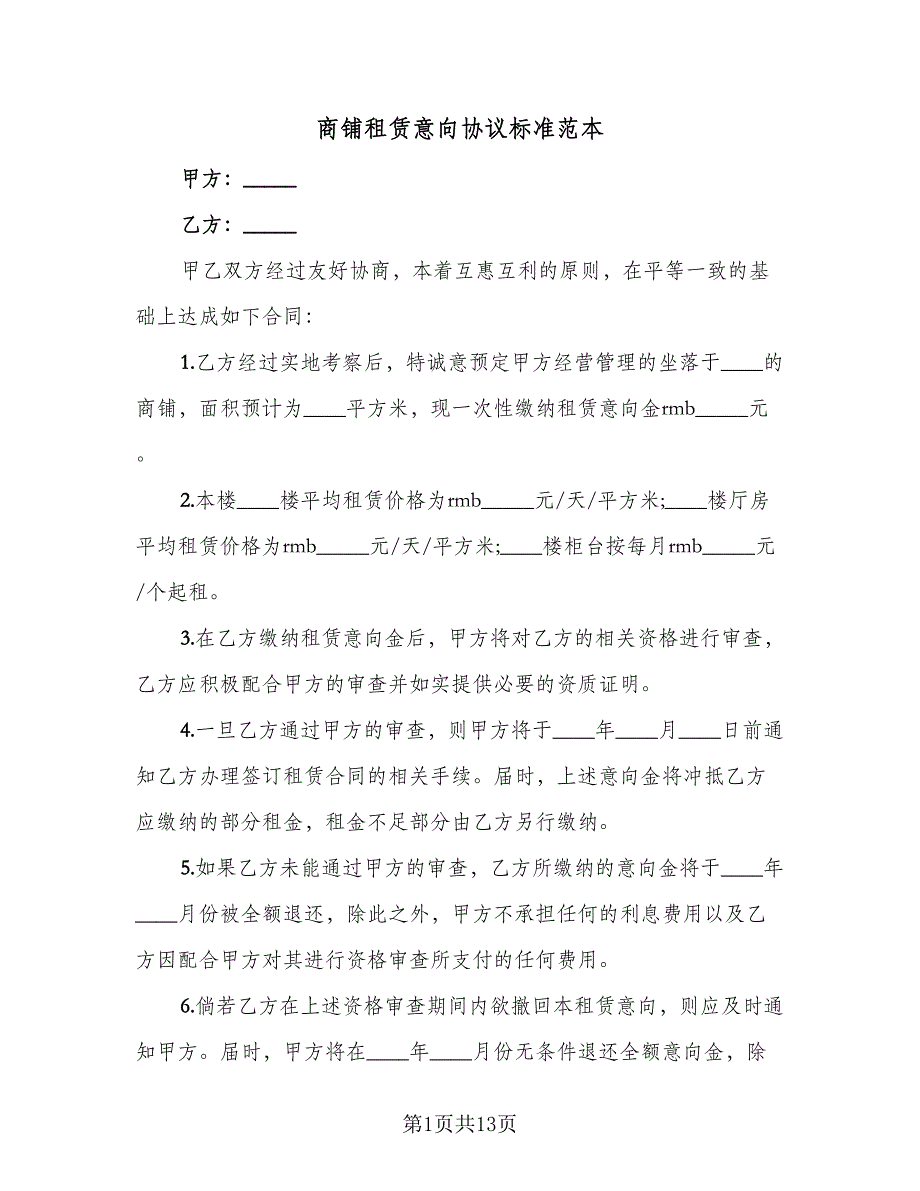 商铺租赁意向协议标准范本
甲方：_____
乙方：_____
甲乙双方经过友好协商，本着互惠互利的原则，在平等一致的基
础上达成如下合同：
1.乙方经过实地考察后，特诚意预定甲方经营管理的坐落于____的
商铺，面积预计为____平方米，现一次性缴纳租赁意向金rmb_____元
。
2.本楼____楼平均租赁价格为rmb_____元/天/平方米;____楼厅房
平均租赁价格为rmb_____元/天/平方米;____楼柜台按每月rmb_____元
/个起租。
3.在乙方缴纳租赁意向金后，甲方将对乙方的相关资格进行审查，
乙方应积极配合甲方的审查并如实提供必要的资质证明。
4.一旦乙方通过甲方的审查，则甲方将于____年____月____日前通
知乙方办理签订租赁合同的相关手续。届时，上述意向金将冲抵乙方
应缴纳的部分租金，租金不足部分由乙方另行缴纳。
5.如果乙方未能通过甲方的审查，乙方所缴纳的意向金将于____年
____月份被全额退还，除此之外，甲方不承担任何的利息费用以及乙
方因配合甲方对其进行资格审查所支付的任何费用。
6.倘若乙方在上述资格审查期间内欲撤回本租赁意向，则应及时通
知甲方。届时，甲方将在____年____月份无条件退还全额意向金，除
第1页共13页